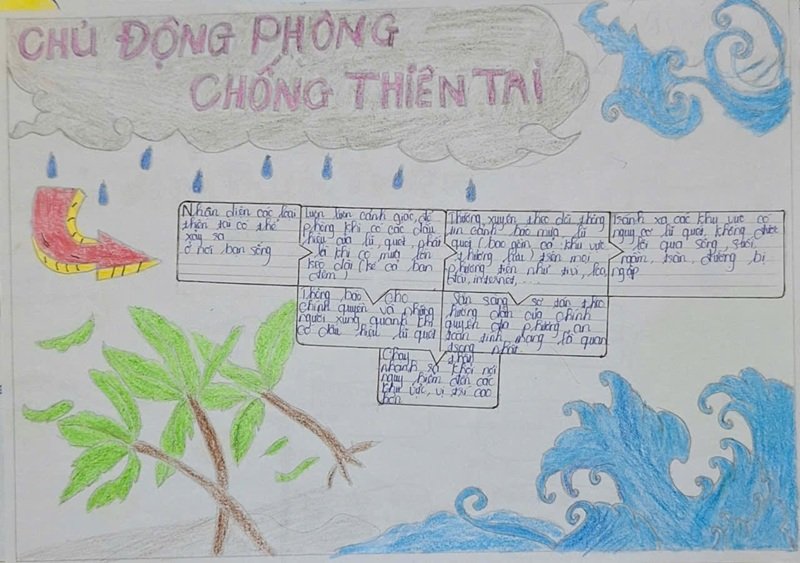 CHỦ ĐỘNG PHÒNG
CHỐNG THIÊN TAI
Nhận diện các loại
thiên tai có thể
xảy ra
ở nơi bạn sống
Luôn luôn cảnh giác, đề
phòng khi có các dấu
hiệu của lũ, quét, phát
lở khi có mưa lớn
kéo dài (kể cả ban
đêm)
Thường xuyên theo dõi thông
tin cảnh báo mưa, lũ
quét (bao gồm cả khu vực
thượng lưu) trên mọi
phương tiện như tivi, loa,
đài, internet,...
Tránh xa các khu vực có
nguy cơ lũ quét, không được
lội qua sông, suối
ngầm, tràn, đường bị
ngập
Thông báo cho
chính quyền và những
người xung quanh khi
có dấu hiệu lũ quét
Sẵn sàng sơ tán theo
hướng dẫn của chính
quyền địa phương, an
toàn tính mạng là quan
trọng nhất.
Chạy thật
nhanh ra khỏi nơi
nguy hiểm đến các
khu vực, vị trí cao
hơn